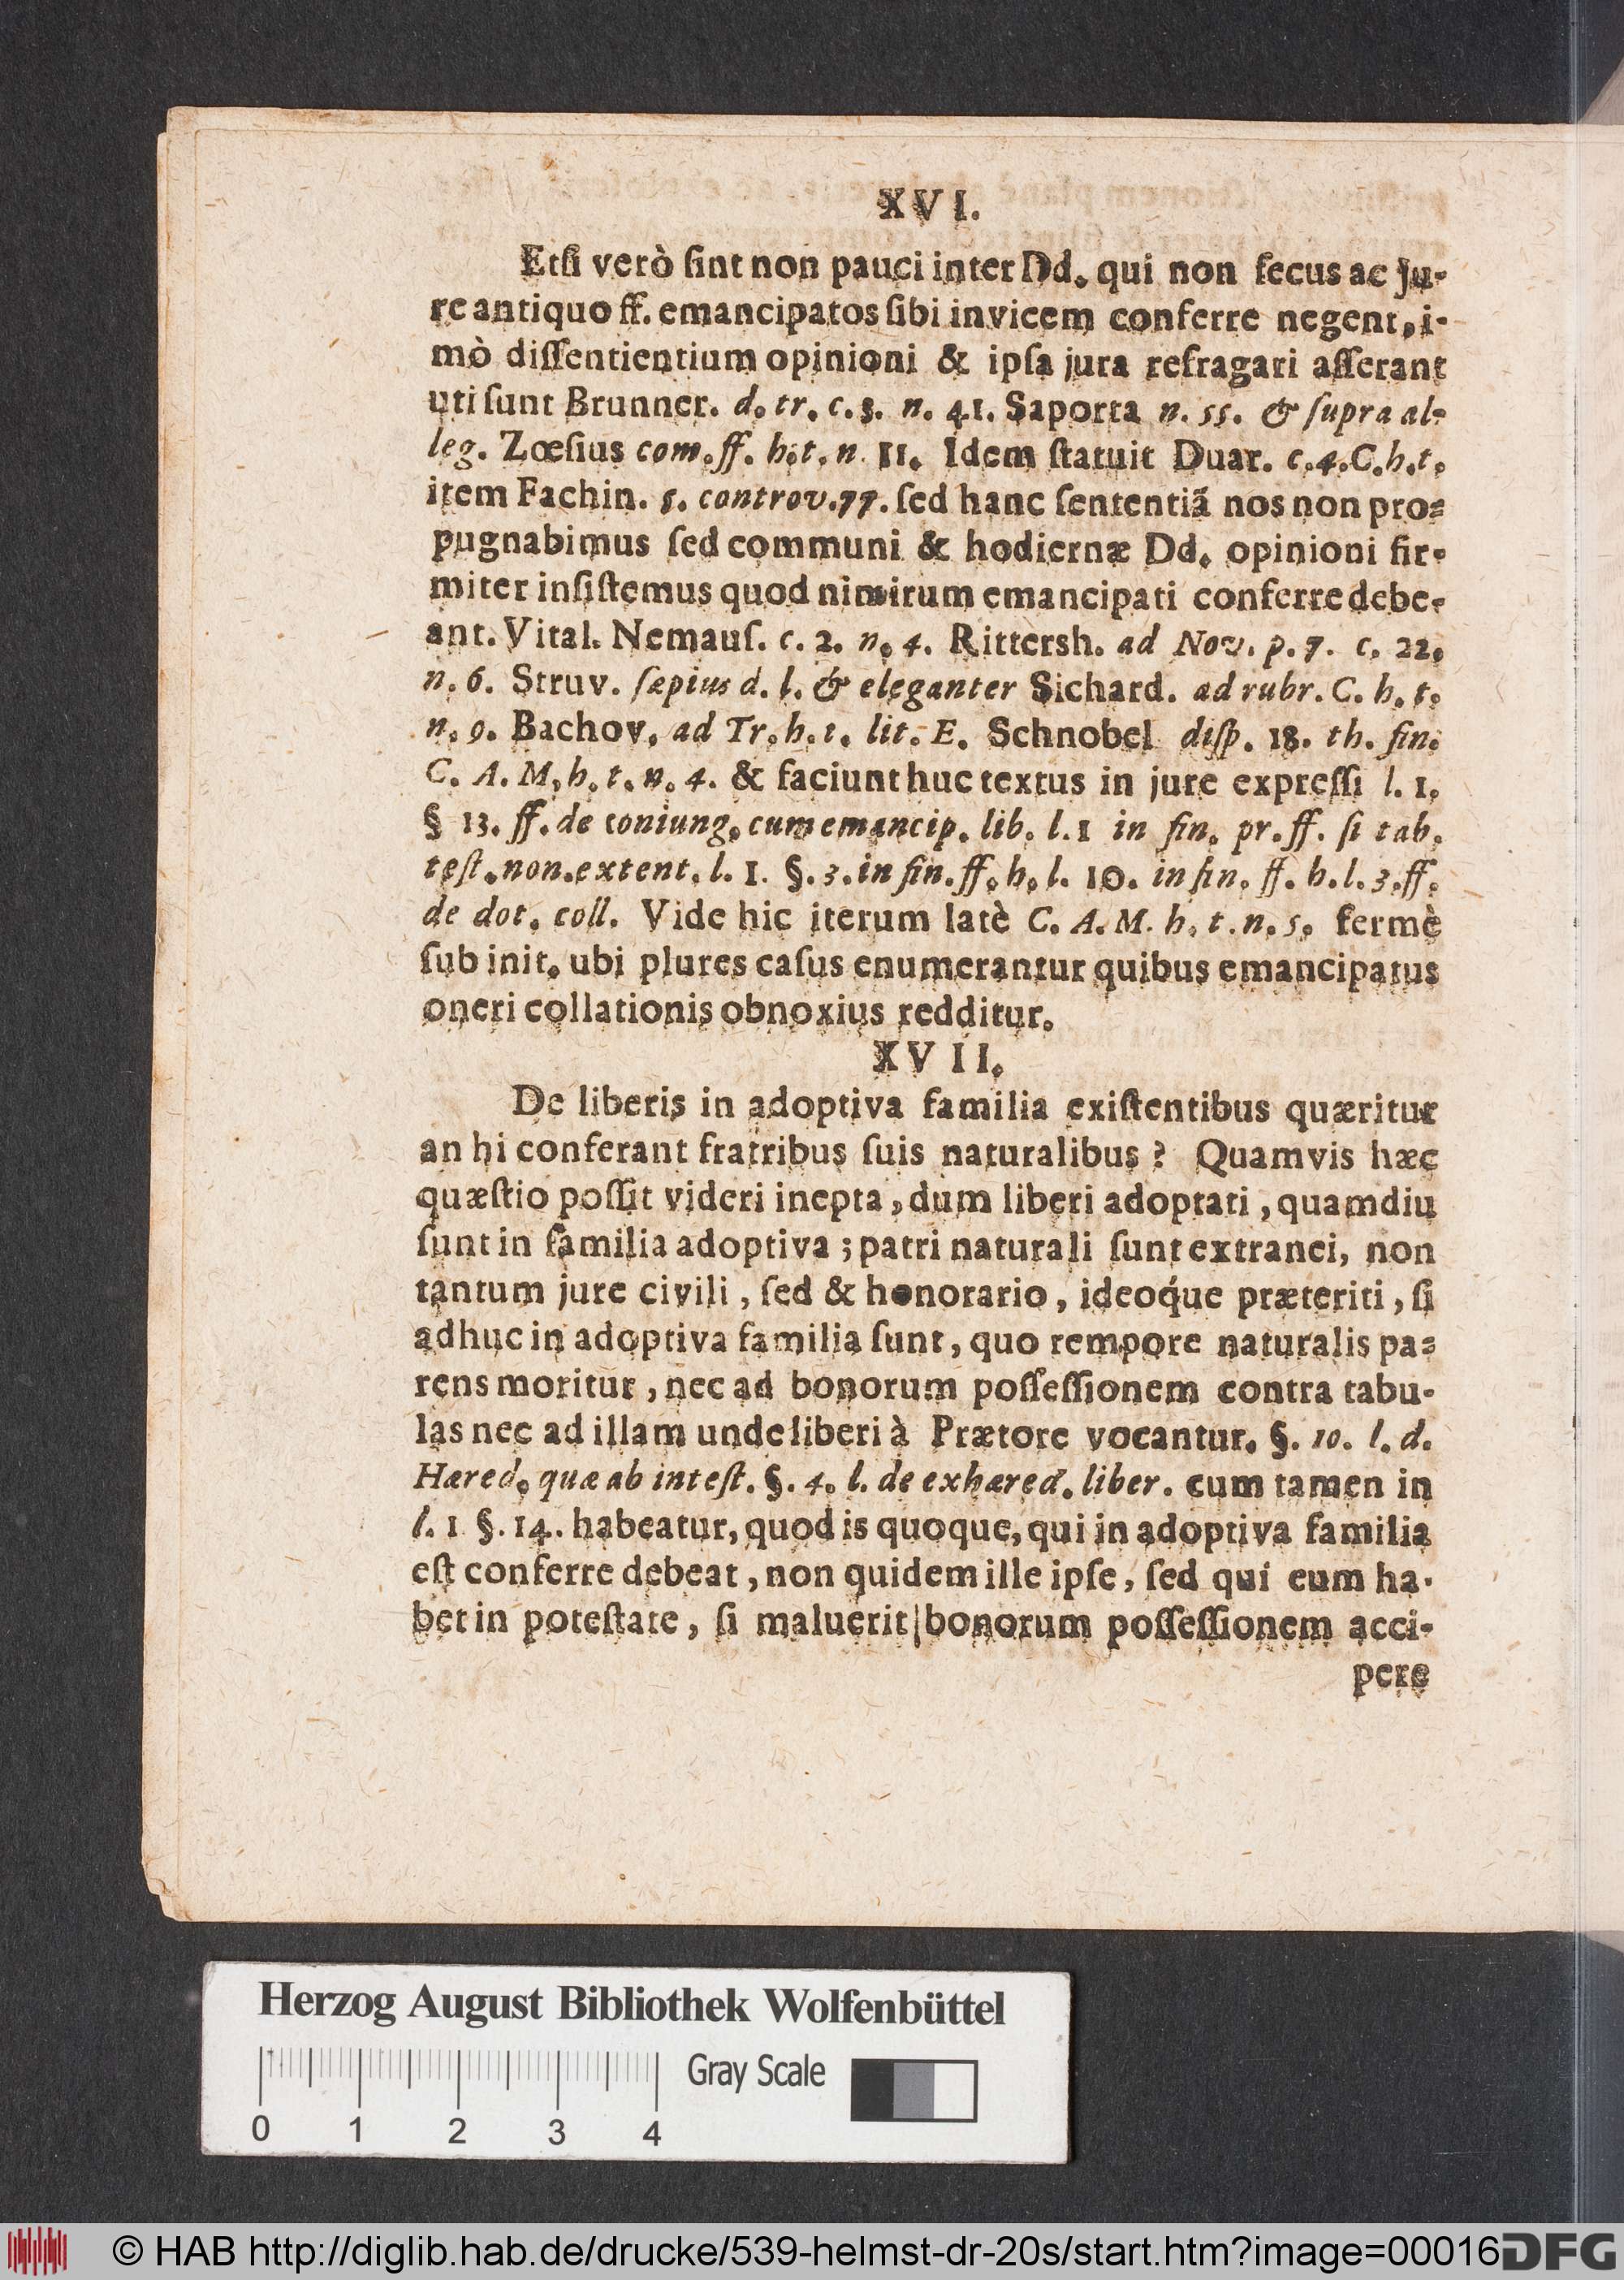 XVI.
Etſi verò ſint non pauci inter Dd. qui non ſecus ac Ju-
re antiquo ff. emancipatos ſibi invicem conferre negent, i-
mò diſſentientium opinioni & ipſa jura refragari aſſerant
uti ſunt Brunner. d. tr. c. 5. n. 41. Saporta n. 55. & ſupra al-
leg. Zœſius com. ff. h. t. n. 11. Idem ſtatuit Duar. c. 4. C. h. t.
item Fachin. 5. controv. 77. ſed hanc ſententiã nos non pro-
pugnabimus ſed communi & hodiernæ Dd. opinioni fir-
miter inſiſtemus quod nimirum emancipati conferre debe-
ant. Vital. Nemauſ. c. 2. n. 4. Rittersh. ad Nov. p. 7. c. 22.
n. 6. Struv. ſæpius d. l. & eleganter Sichard. ad rubr. C. h. t.
n. 9. Bachov. ad Tr. h. t. lit. E. Schnobel diſp. 18. th. fin.
C. A. M. h. t. n. 4. & faciunt huc textus in jure expreſſi l. 1.
§ 13. ff. de coniung. cum emancip. lib. l. 1 in fin. pr. ff. ſi tab.
teſt. non. extent. l. 1. §. 3. in fin. ff. h. l. 10. in fin. ff. h. l. 3. ff.
de dot. coll. Vide hic iterum latè C. A. M. h. t. n. 5. fermè
ſub init. ubi plures caſus enumerantur quibus emancipatus
oneri collationis obnoxius redditur.
XVII.
De liberis in adoptiva familia exiſtentibus quæritur
an hi conferant fratribus ſuis naturalibus? Quamvis hæc
quæſtio poſſit videri inepta, dum liberi adoptati, quamdiu
ſunt in familia adoptiva; patri naturali ſunt extranei, non
tantum jure civili, ſed & honorario, ideoq́ue præteriti, ſi
adhuc in adoptiva familia ſunt, quo rempore naturalis pa-
rens moritur, nec ad bonorum poſſeſſionem contra tabu-
las nec ad illam unde liberi à Prætore vocantur. §. 10. l. d.
Hæred. quæ ab inteſt. §. 4. l. de exhæred. liber. cum tamen in
l. 1 §. 14. habeatur, quod is quoque, qui in adoptiva familia
eſt conferre debeat, non quidem ille ipſe, ſed qui eum ha-
bet in poteſtate, ſi maluerit bonorum poſſeſſionem acci-
pere
Herzog August Bibliothek Wolfenbüttel
Gray Scale
0 1 2 3 4
© HAB http://diglib.hab.de/drucke/539-helmst-dr-20s/start.htm?image=00016 DFG